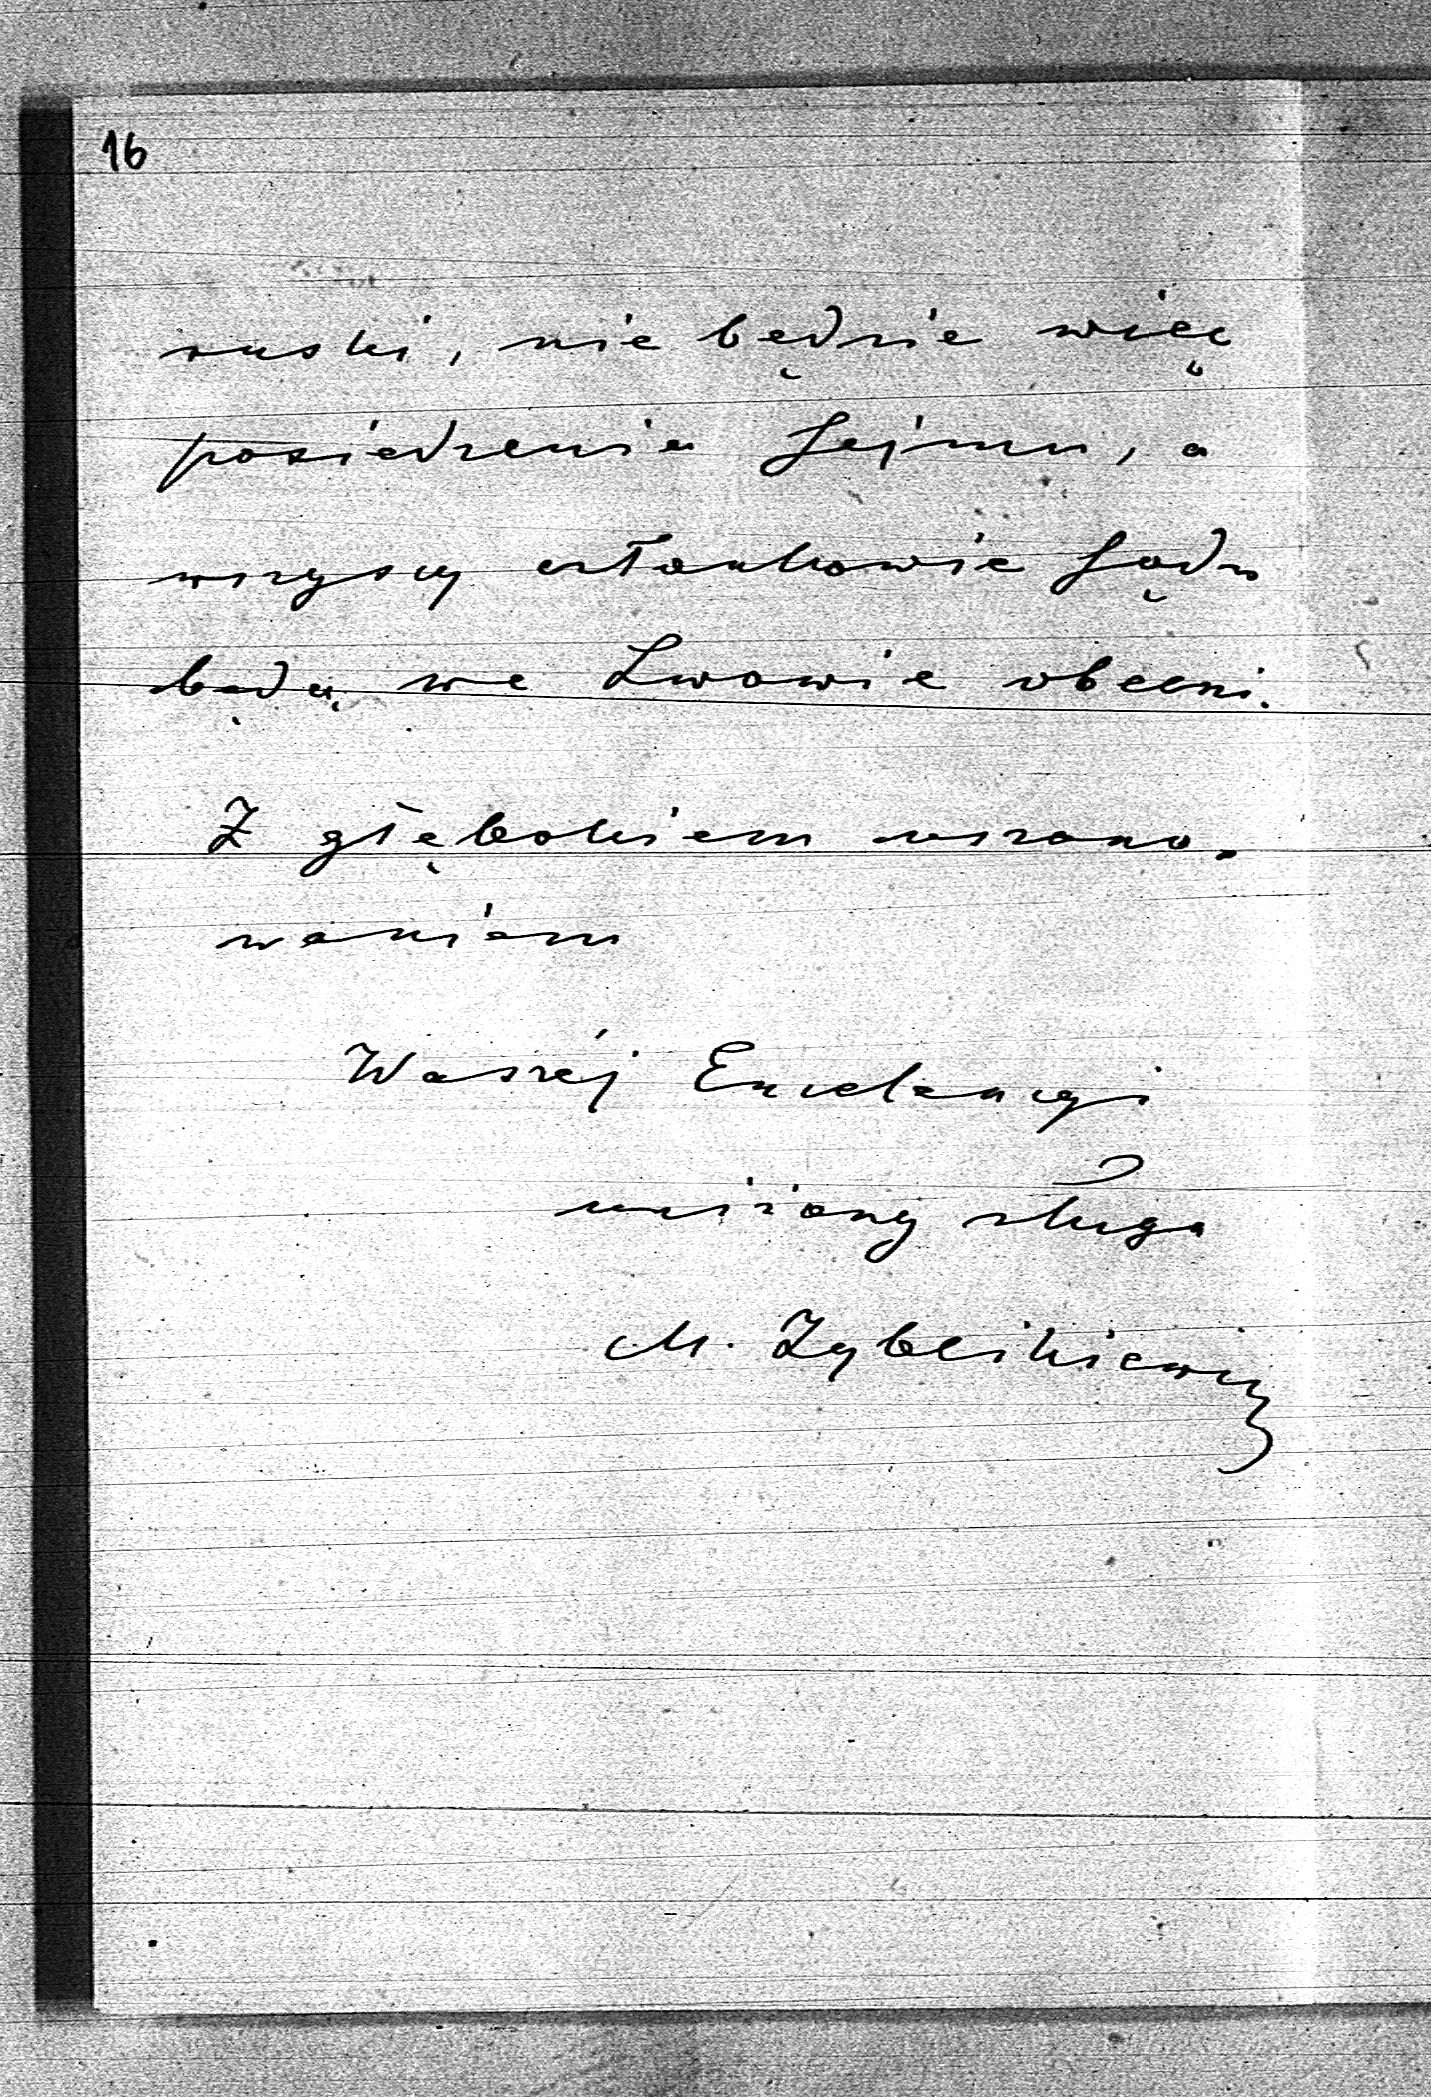 16
ruski, nie będzie więc
posiedzenia Sejmu, a
wszyscy członkowie Sądu
będą we Lwowie obecni.
Z głębokiem uszano-
waniem
Waszéj Excelencyi
uniżony sługa
M. Zyblikiewicz